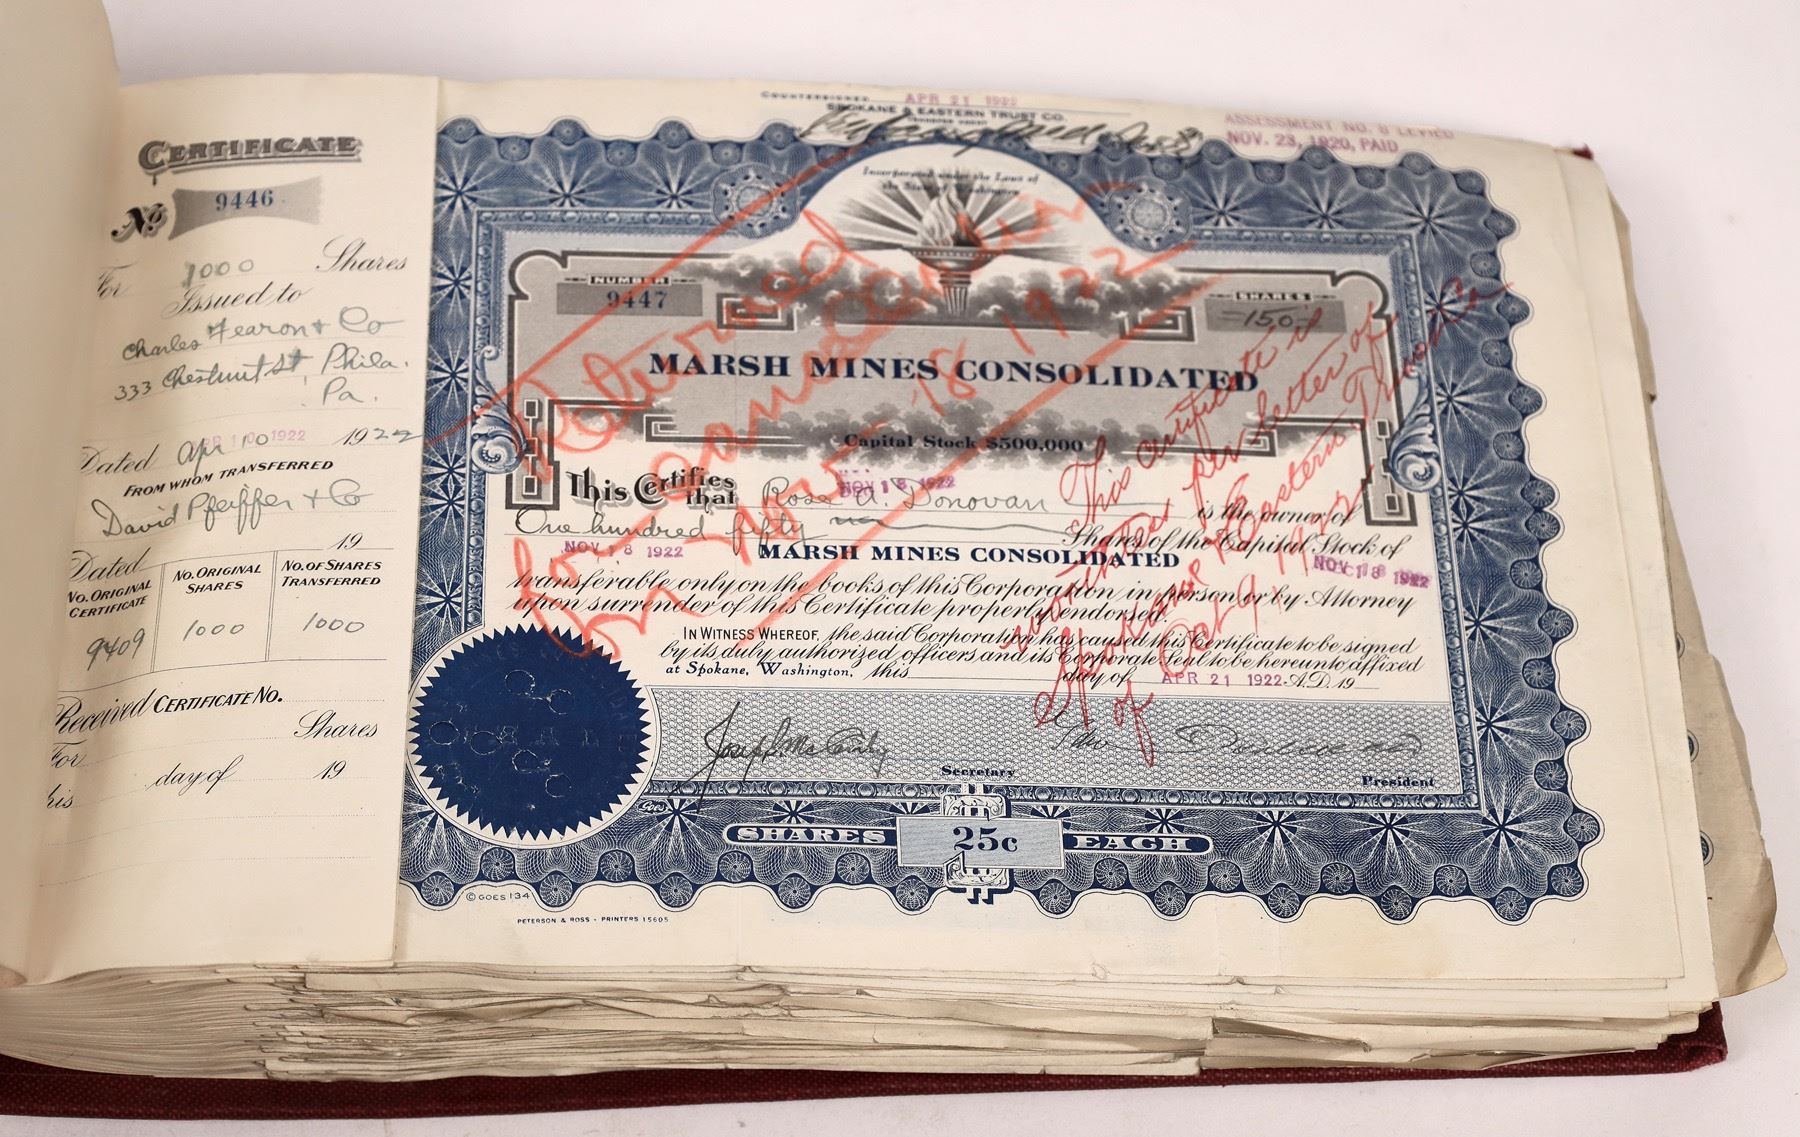 CERTIFICATE
No 9446
For 1000 Shares
Issued to
Charles Fearon & Co
333 Chestnut St, Phila.
Pa.
Dated Apr 10 1922
APR 10 1922
FROM WHOM TRANSFERRED
David Pfeiffer & Co
Dated 19
NO. ORIGINAL CERTIFICATE
NO. ORIGINAL SHARES
NO. OF SHARES TRANSFERRED
9409 1000 1000
Received CERTIFICATE NO.
For Shares
his day of 19
COUNTERSIGNED APR 21 1922
SPOKANE & EASTERN TRUST CO.
TRANSFER AGENT
ASSESSMENT NO. 8 LEVIED
NOV. 23, 1920, PAID
Incorporated under the Laws of
the State of Washington
NUMBER
9447
SHARES
-150-
MARSH MINES CONSOLIDATED
Capital Stock $500,000
This Certifies that Rose A. Donovan is the owner of
NOV 18 1922
One hundred fifty Shares of the Capital Stock of
NOV 18 1922
MARSH MINES CONSOLIDATED
NOV 18 1922
transferable only on the books of this Corporation in person or by Attorney
upon surrender of this Certificate properly endorsed.
IN WITNESS WHEREOF, the said Corporation has caused this Certificate to be signed
by its duly authorized officers and its Corporate Seal to be hereunto affixed
at Spokane, Washington, this day of APR 21 1922 A.D. 19
Joseph McCarthy
Secretary
President
SHARES 25c EACH
GOES
© GOES 134
PETERSON & ROSS - PRINTERS 15605
Returned
for Cancellation
Nov 18 1922
This certificate is
per letter of
Spokane & Eastern Trust Co
of Oct 9 1922